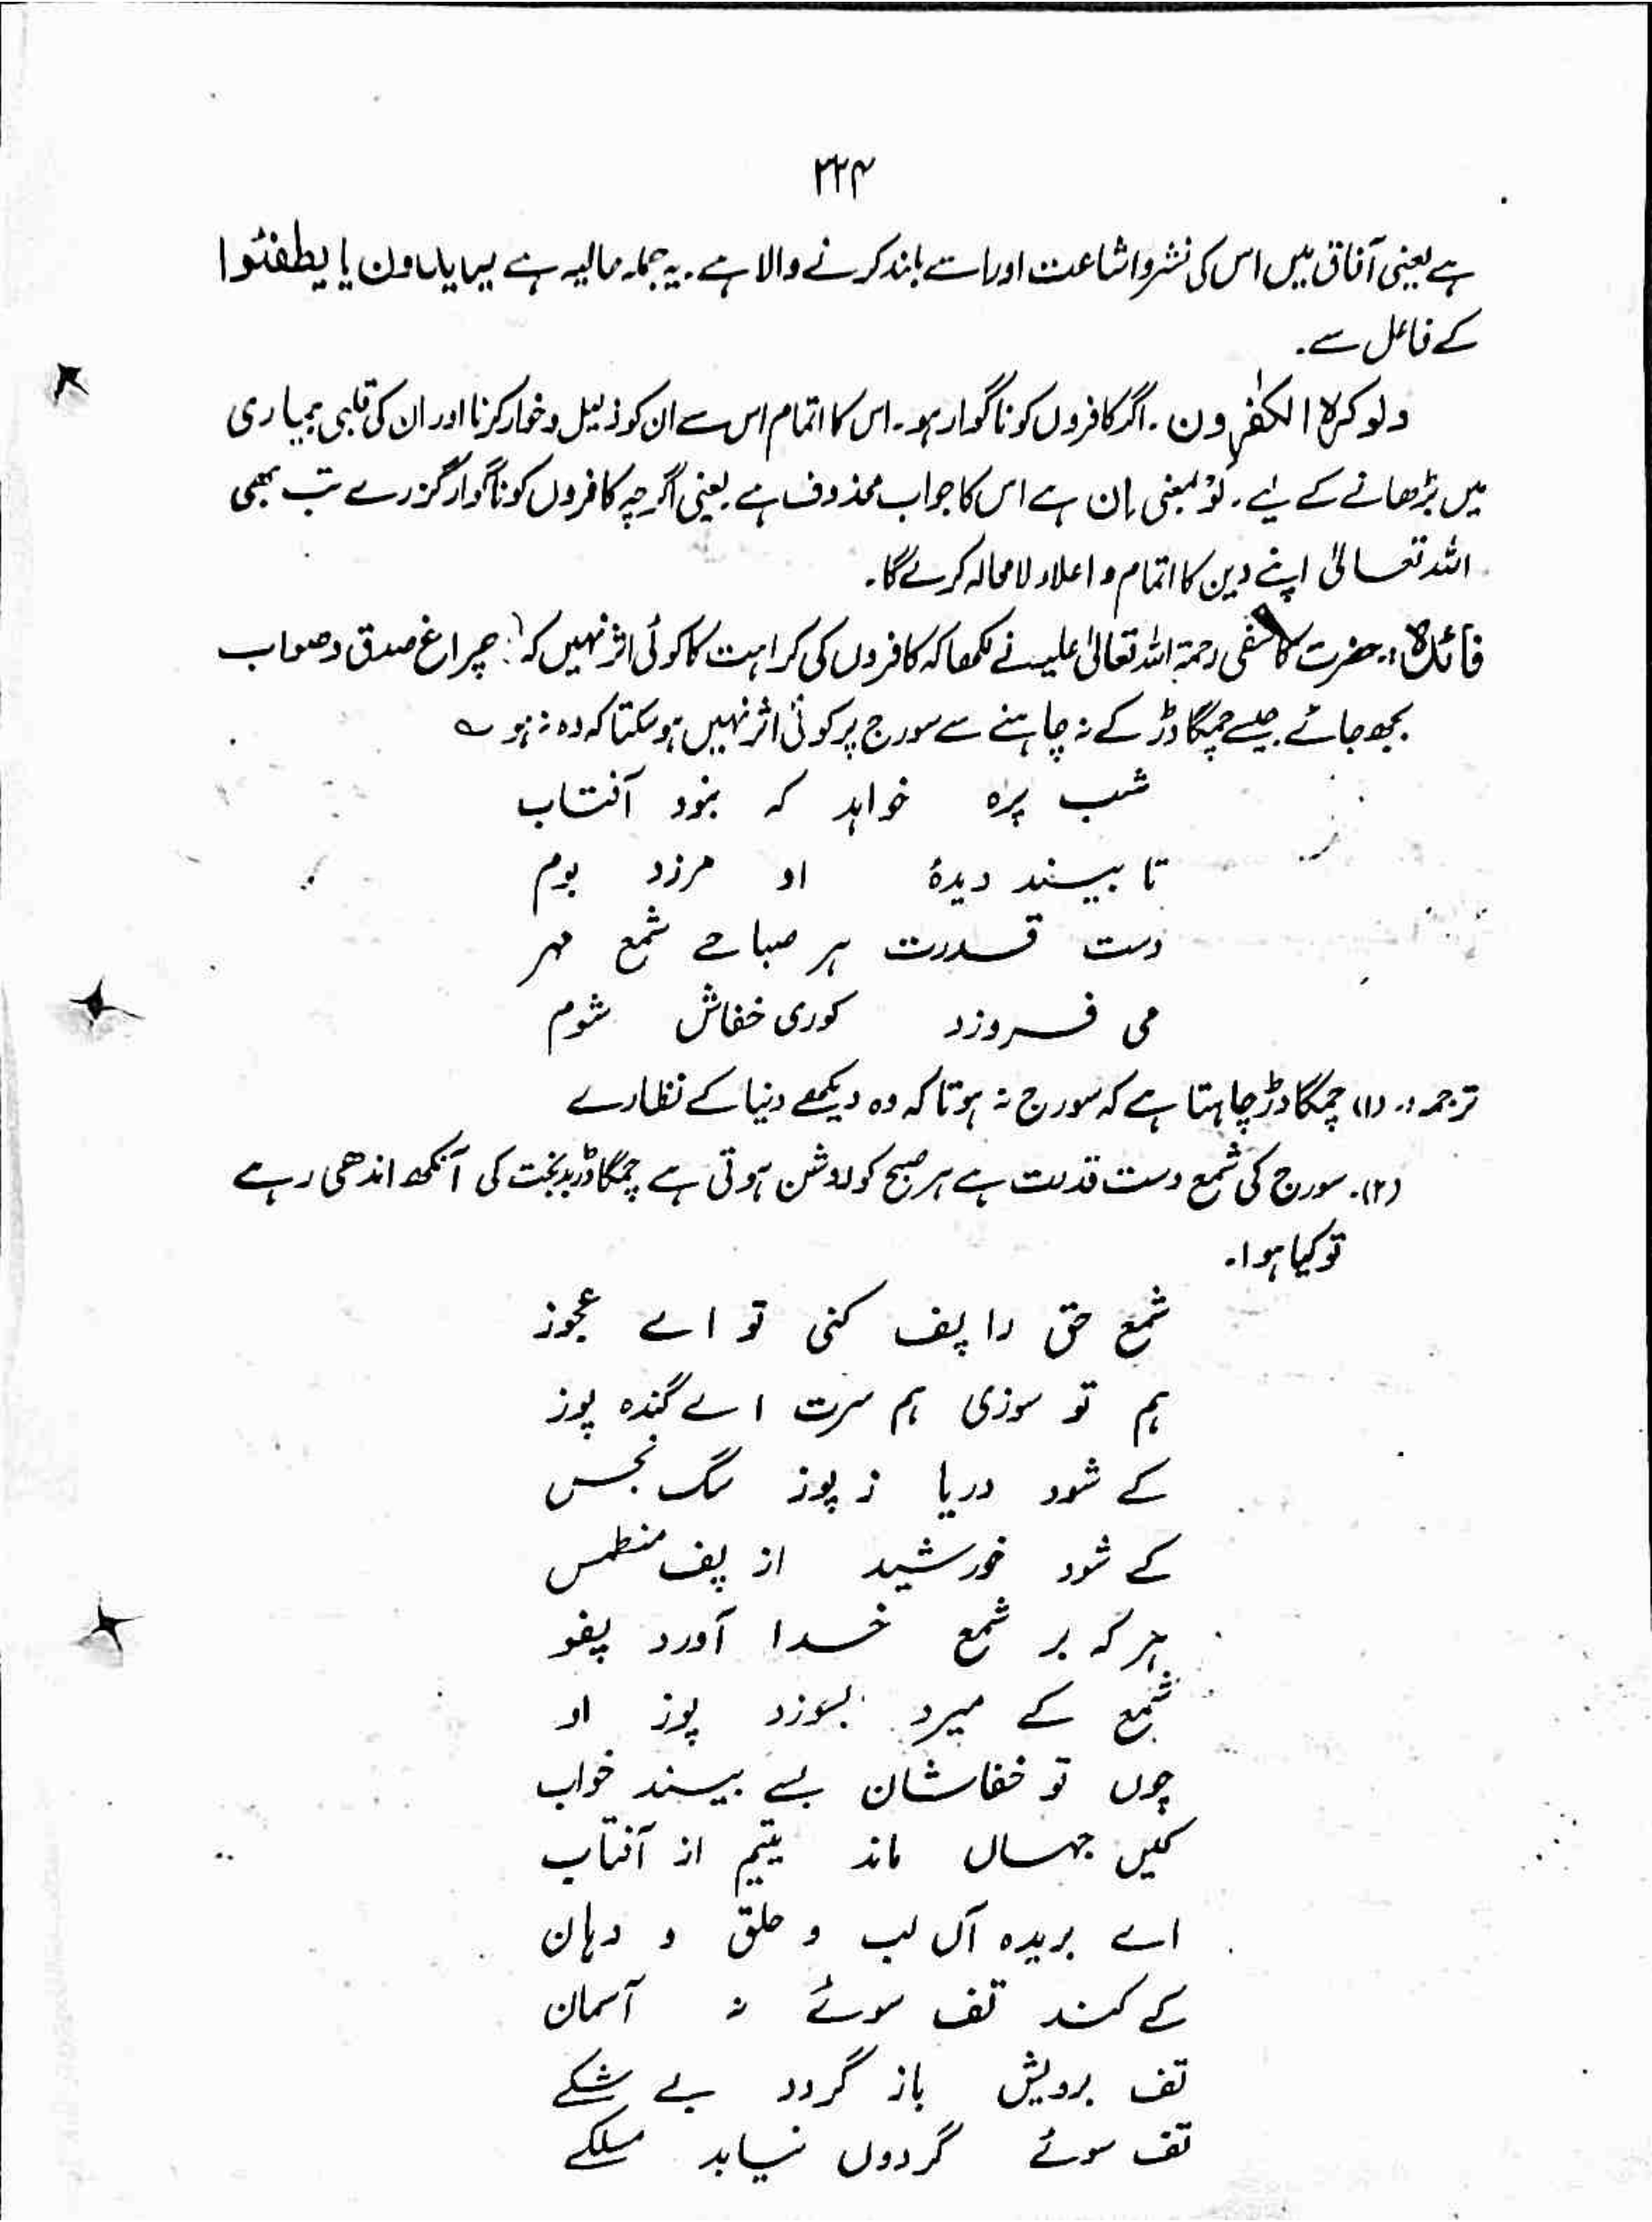 ۲۲۴
ہے یعنی آفاق میں اس کی نشر و اشاعت اور اسے بلند کرنے والا ہے ۔ یہ جملہ حالیہ ہے یریدون یا یطفئوا
کے فاعل سے۔
ولو کرہ الکٰفرون ۔ اگر کافروں کو ناگوار ہو۔ اس کا اتمام اس سے ان کو ذلیل و خوار کرنا اور ان کی قلبی بیماری
میں بڑھانے کے لیے ۔ لَوْ بمعنی اِن ہے اس کا جواب محذوف ہے یعنی اگرچہ کافروں کو ناگوار گزرے تب بھی
اللہ تعالیٰ اپنے دین کا اتمام و اعلاء لامحالہ کرے گا۔
فائدہ :۔ حضرت کاشفی رحمۃ اللہ تعالیٰ علیہ نے لکھا کہ کافروں کی کراہت کا کوئی اثر نہیں کہ چراغ صدق و صواب
بجھ جائے جیسے چمگادڑ کے نہ چاہنے سے سورج پر کوئی اثر نہیں ہو سکتا کہ وہ نہ ہو ؎
شب پرہ خواہد کہ نبود آفتاب
تا ببیند دیدۂ او مرزد بوم
دست قدرت ہر صباحے شمع مہر
می فروزد کوری خفاش شوم
ترجمہ :۔ (۱) چمگادڑ چاہتا ہے کہ سورج نہ ہو تاکہ وہ دیکھے دنیا کے نظارے
(۲)۔ سورج کی شمع دست قدرت ہے ہر صبح کو روشن ہوتی ہے چمگادڑ بدبخت کی آنکھ اندھی رہے
تو کیا ہوا۔
شمع حق را پف کنی تو اے عجوز
ہم تو سوزی ہم سرت اے گندہ پوز
کے شود دریا ز پوز سگ نجس
کے شود خورشید از پف منطمس
ہر کہ بر شمع خدا آورد پفو
شمع کے میرد بسوزد پوز او
چوں تو خفاشان بسے بیند خواب
کیں جہاں ماند یتیم از آفتاب
اے بریدہ آں لب و حلق و دہان
کے کند تف سوئے نہ آسمان
تف برویش باز گردد بے شکے
تف سوئے گردوں نیابد مسلکے